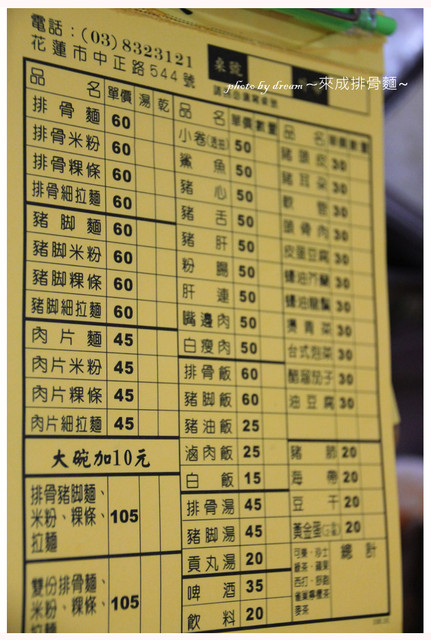 電話：(03) 8323121
花蓮市中正路544號
photo by dream ～來成排骨麵～
品 名 單價 湯 乾
排骨麵 60
排骨米粉 60
排骨粿條 60
排骨細拉麵 60
豬腳麵 60
豬腳米粉 60
豬腳粿條 60
豬腳細拉麵 60
肉片麵 45
肉片米粉 45
肉片粿條 45
肉片細拉麵 45
大碗加10元
排骨豬腳麵、
米粉、粿條、 105
拉麵
雙份排骨麵、
米粉、粿條、 105
拉麵
品 名 單價 數量
小卷 50
鯊魚 50
豬心 50
豬舌 50
豬肝 50
粉腸 50
肝連 50
嘴邊肉 50
白瘦肉 50
排骨飯 60
豬腳飯 60
豬油飯 25
滷肉飯 25
白飯 15
排骨湯 45
豬腳湯 45
貢丸湯 20
啤酒 35
飲料 20
品 名 單價 數量
豬頭皮 30
豬耳朵 30
軟管 30
頭骨肉 30
皮蛋豆腐 30
蠔油芥蘭 30
蠔油龍鬚 30
燙青菜 30
台式泡菜 30
醋溜茄子 30
油豆腐 30
豬肺 20
海帶 20
豆干 20
黃金蛋 20
總計